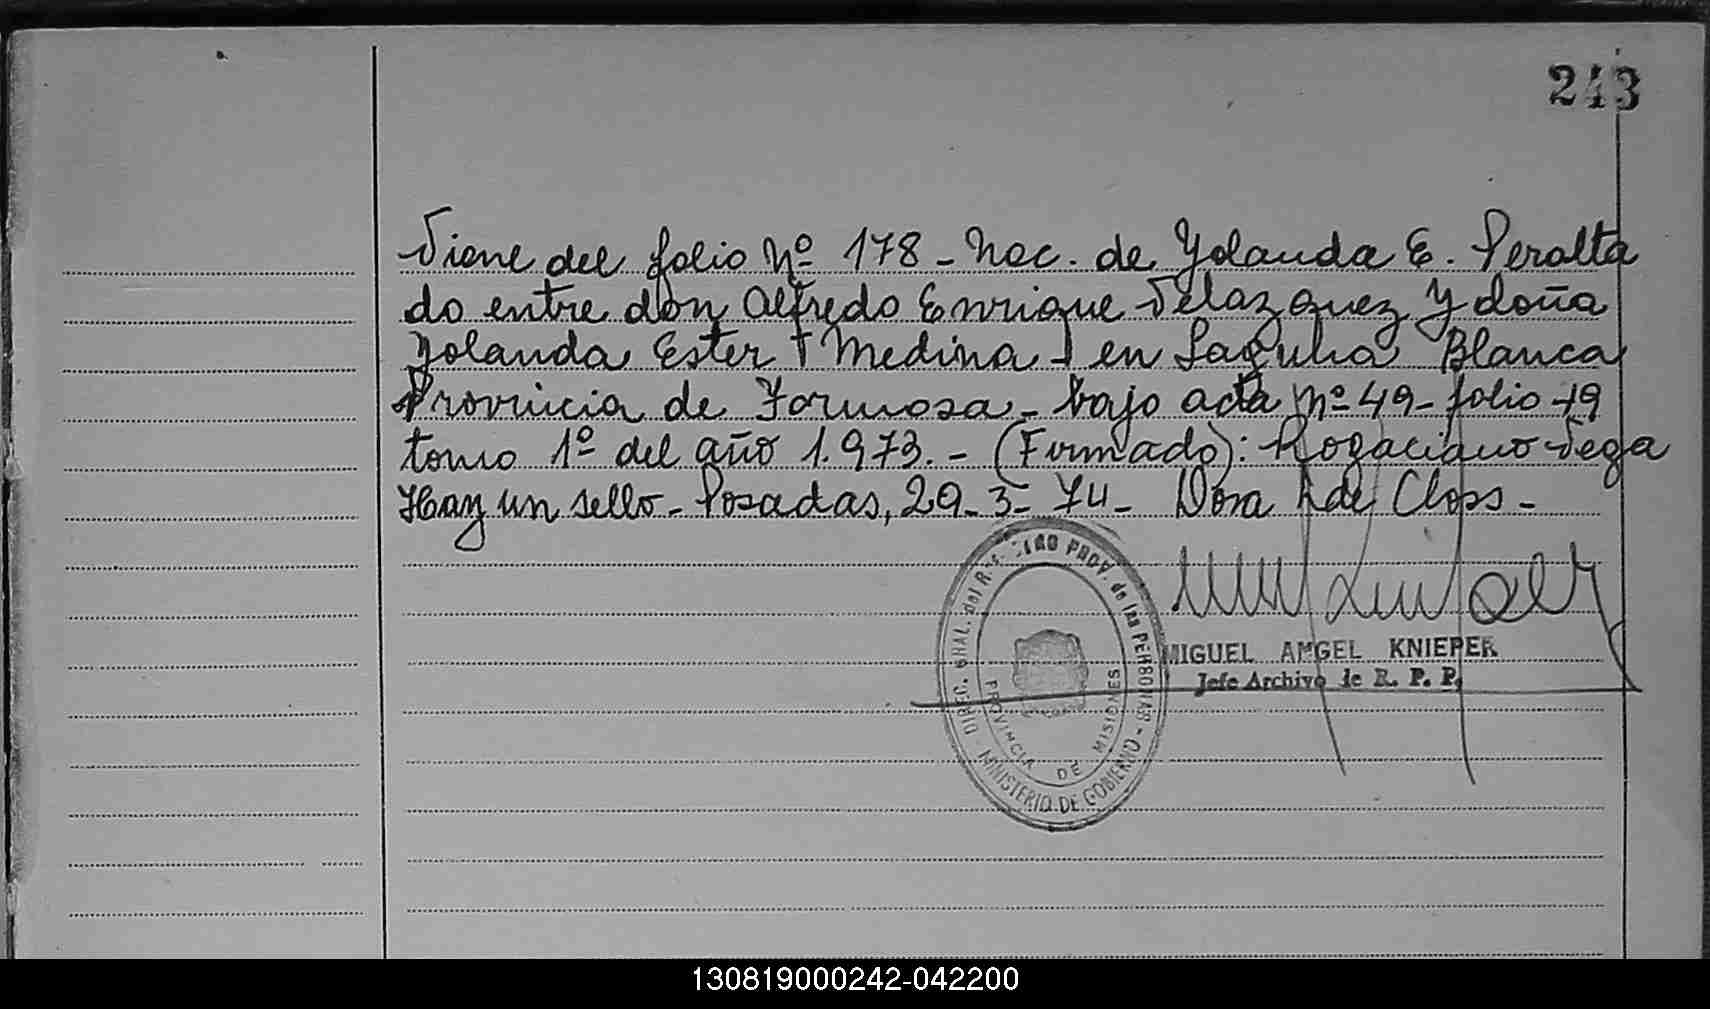 243
Viene del folio Nº 178 - Nac. de Yolanda E. Peralta
do entre don Alfredo Enrique Velazquez y doña
Yolanda Ester Medina - en Laguna Blanca
Provincia de Formosa - bajo acta Nº 49 - folio 49
tomo 1º del año 1.973. - (Firmado): Rogaciano Vega
Hay un sello - Posadas, 29-3-74 - Dora de Closs -
DIREC. GRAL. del REGISTRO PROV. de las PERSONAS - MINISTERIO DE GOBIERNO -
PROVINCIA DE MISIONES
MIGUEL ANGEL KNIEPER
Jefe Archivo de R. P. P.
130819000242-042200